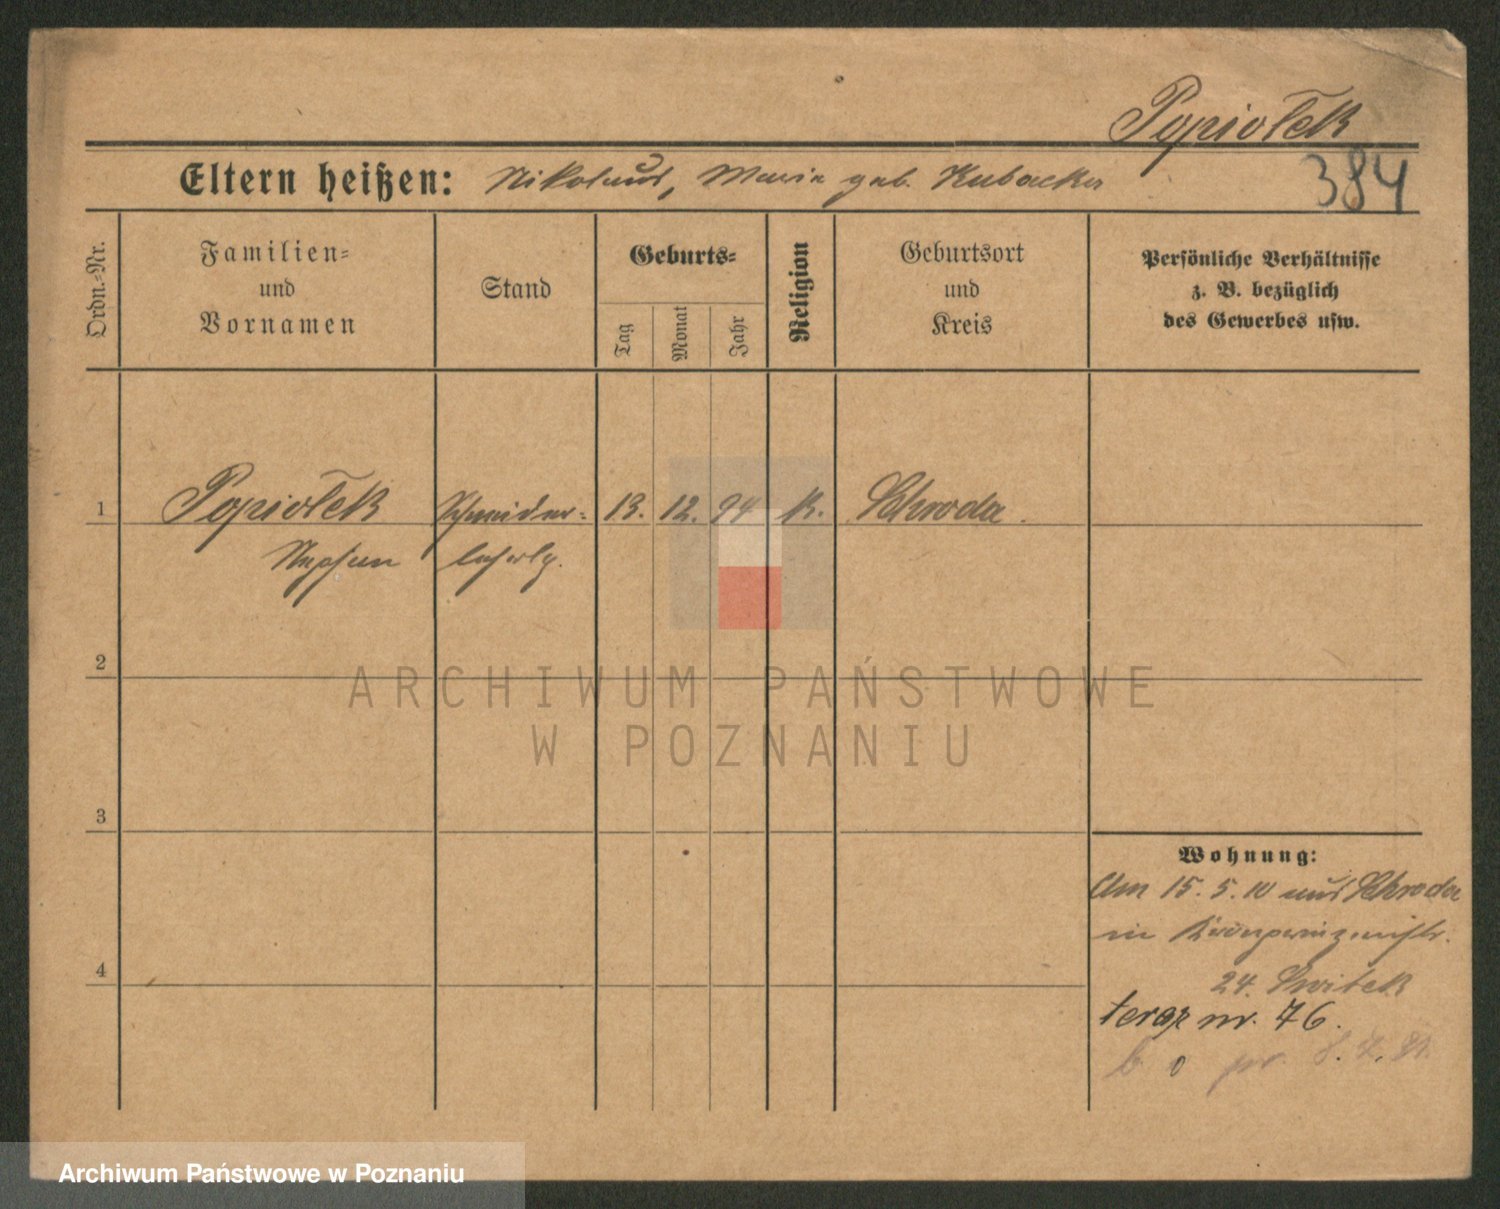 Popiołek
384
Eltern heißen: Nikolaus, Maria geb. Kubacka
Ordn.-Nr.
Familien-
und
Vornamen
Stand
Geburts-
Tag
Monat
Jahr
Religion
Geburtsort
und
Kreis
Persönliche Verhältnisse
z. B. bezüglich
des Gewerbes usw.
1 Popiołek Schneider- 13. 12. 94 K. Schroda.
lehrlg.
2
3
4
Wohnung:
Am 15.5.10 aus Schroda
in Kronprinzenstr.
24.
teraz nr. 76.
ARCHIWUM PAŃSTWOWE
W POZNANIU
Archiwum Państwowe w Poznaniu